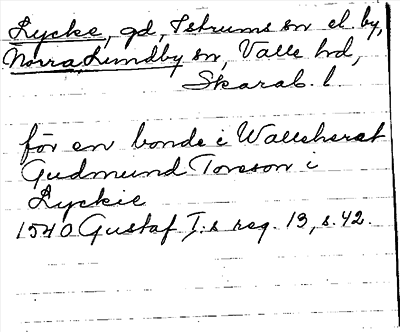 Lycke, gd, Istrums sn el. by,
Norra Lundby sn, Valle hd,
Skarab. l.
för en bonde i Walleherat
Gudmund Toreson i
Lyckie
1540 Gustaf I:s reg. 13, s. 42.